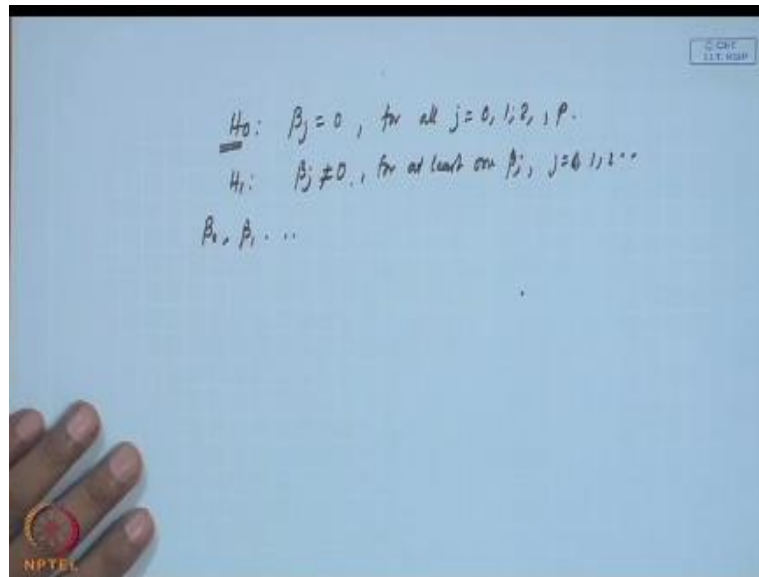 © CET
I.I.T. KGP
H₀: βⱼ = 0, for all j = 0, 1, 2, , P.
H₁: βⱼ ≠ 0., for at least one βⱼ, j = 0 1, 2 ..
β₀, β₁ . ..
NPTEL